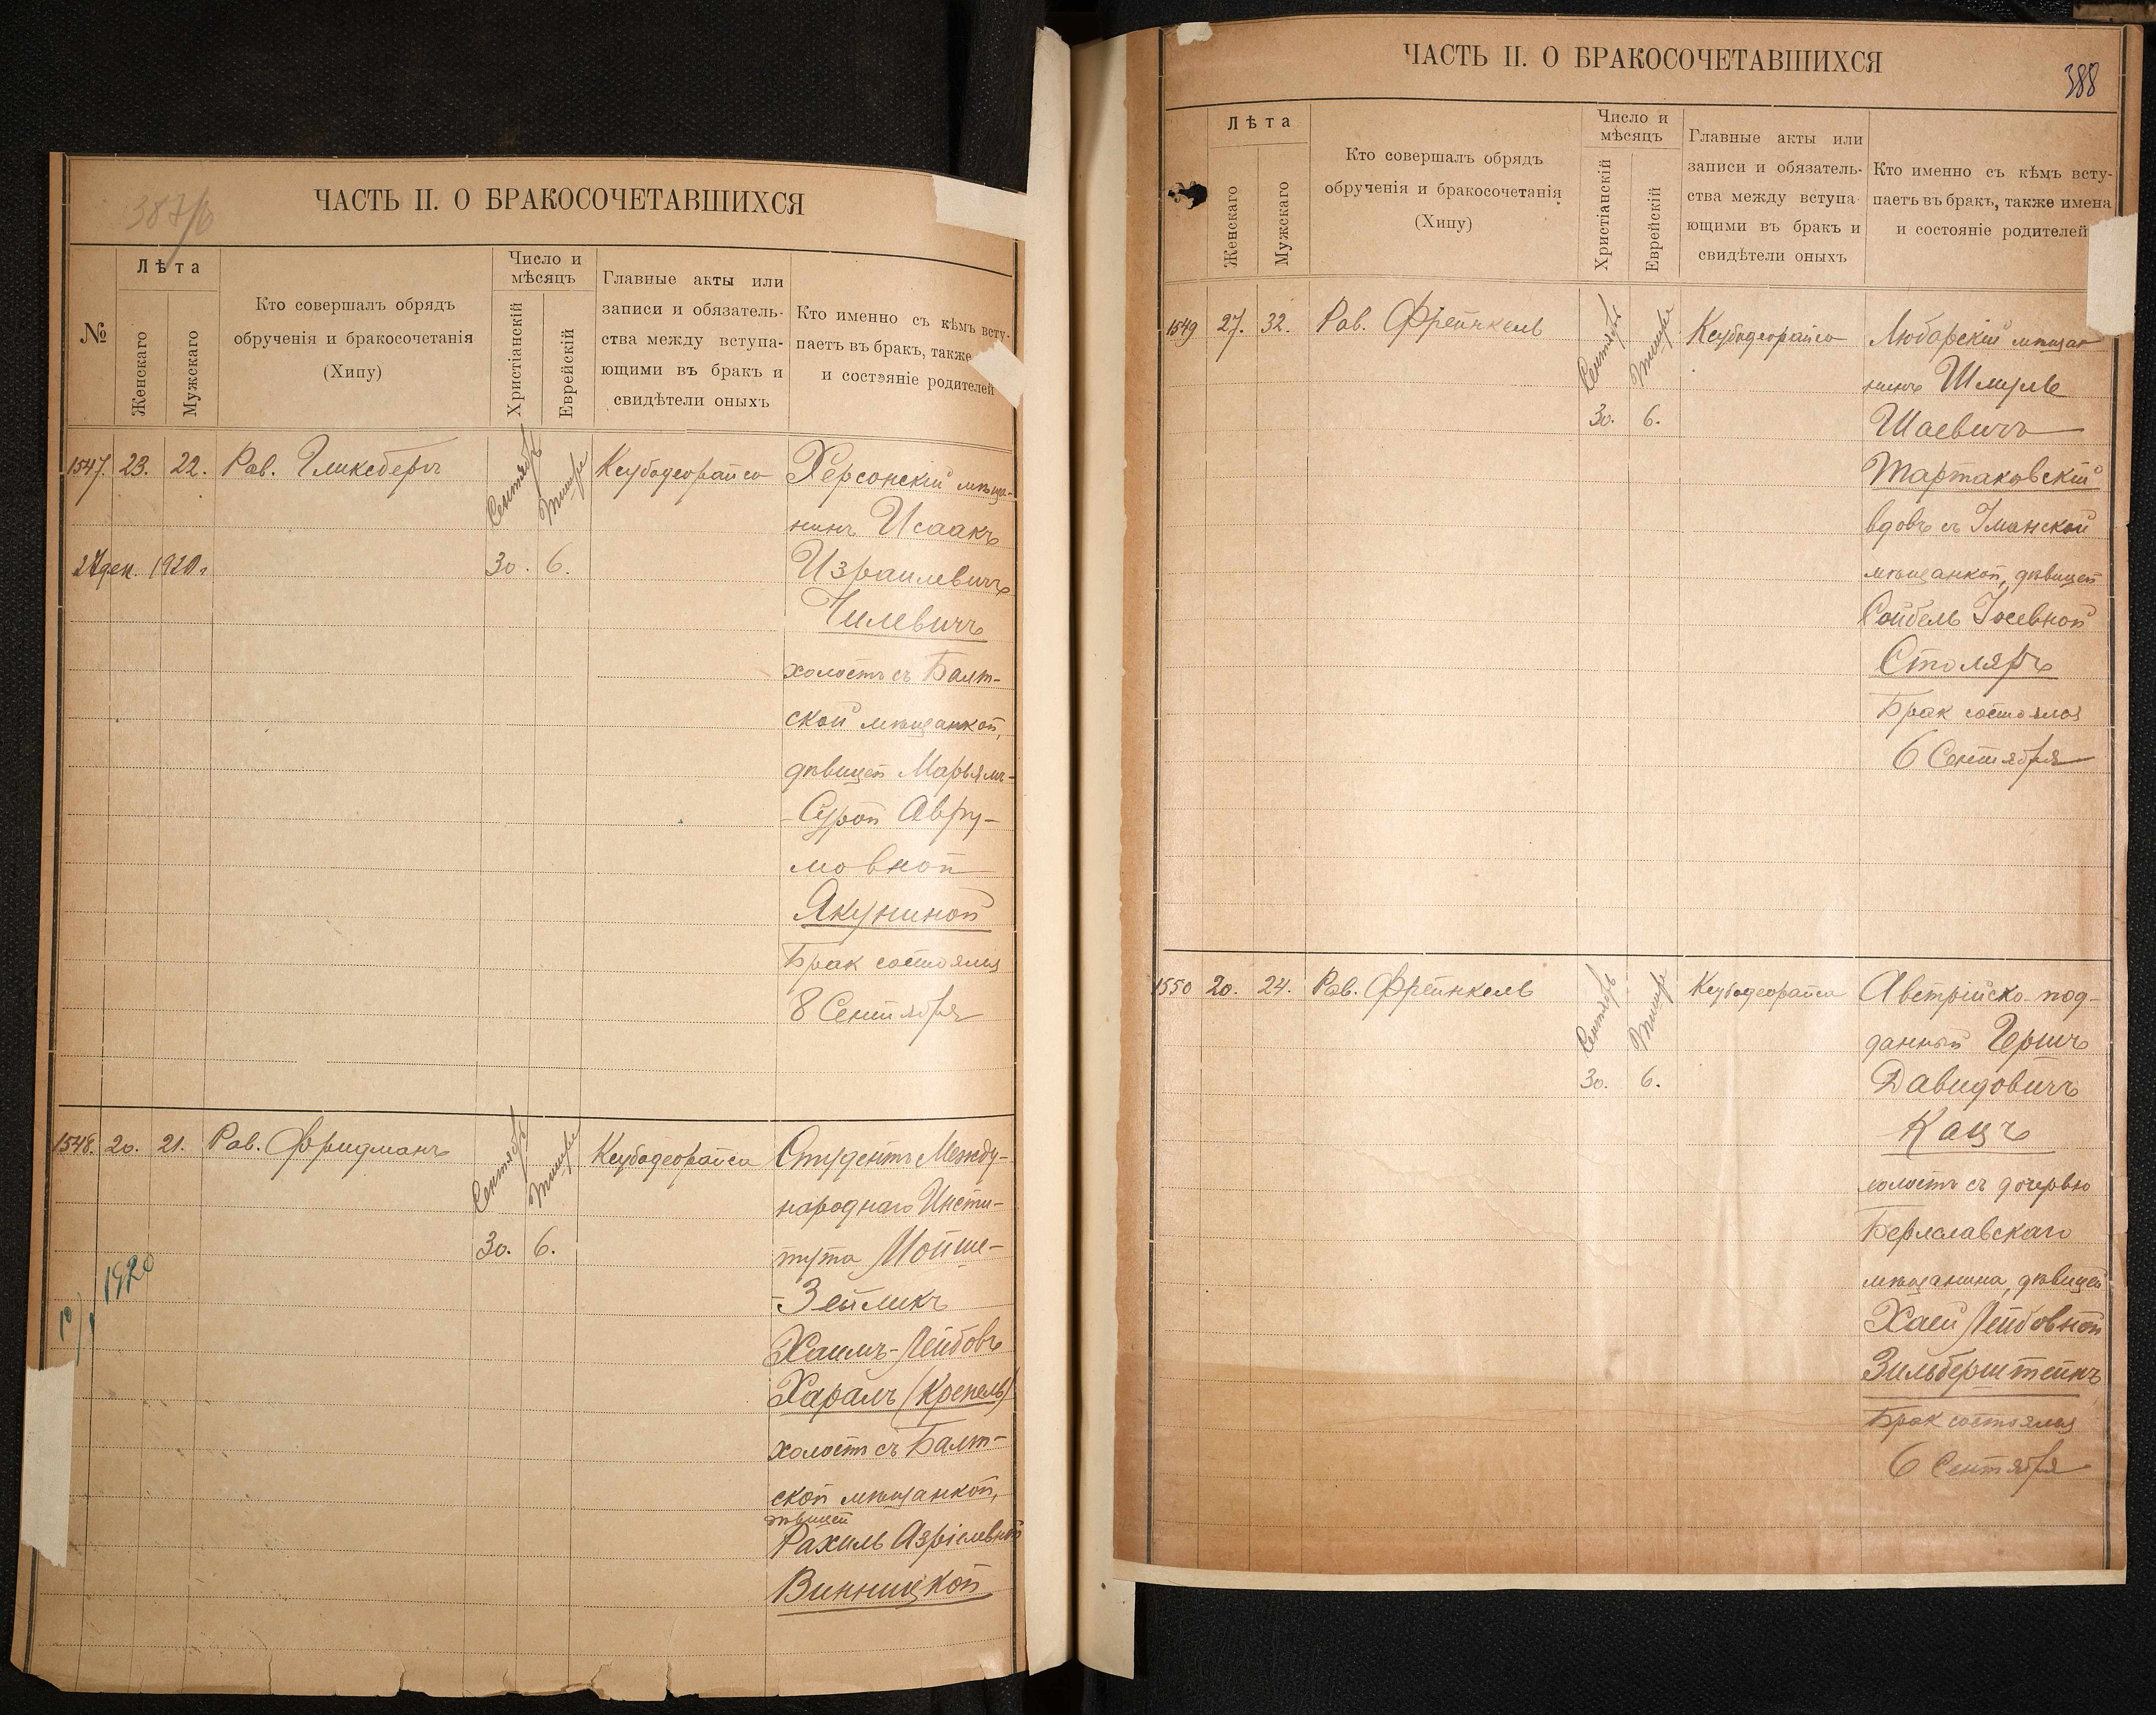 387/б
ЧАСТЬ II. О БРАКОСОЧЕТАВШИХСЯ
№
Лѣта
Женскаго
Мужскаго
Кто совершалъ обрядъ
обрученія и бракосочетанія
(Хипу)
Число и
мѣсяцъ
Христіанскій
Еврейскій
Главные акты или
записи и обязатель-
ства между вступа-
ющими въ бракъ и
свидѣтели оныхъ
Кто именно съ кѣмъ всту-
паетъ въ бракъ, также
и состояніе родителей
1547. 23. 22. Рав. Гликсбергъ
Сентябрь Тишре
30. 6.
Ксубодеорайса
Херсонскій мѣща-
нинъ Исаакъ
Израилевичъ
Чилевичъ
холостъ съ Балт-
ской мѣщанкой,
дѣвицей Марьямъ-
-Сурой Авру-
мовной
Якуниной
Брак состоялся
8 Сентября
дек. 1920г
1548. 20. 21. Рав. Фридманъ
Сентябрь Тишре
30. 6.
Ксубодеорайса
Студентъ Между-
народнаго Инсти-
тута Мойше-
-Зейликъ
Хаимъ-Лейбовъ
Харалъ (Крепель)
холостъ съ Балт-
ской мѣщанкой,
дѣвицей
Рахиль Азріелевной
Винницкой
1920
ЧАСТЬ II. О БРАКОСОЧЕТАВШИХСЯ
388
Лѣта
Женскаго
Мужскаго
Кто совершалъ обрядъ
обрученія и бракосочетанія
(Хипу)
Число и
мѣсяцъ
Христіанскій
Еврейскій
Главные акты или
записи и обязатель-
ства между вступа-
ющими въ бракъ и
свидѣтели оныхъ
Кто именно съ кѣмъ всту-
паетъ въ бракъ, также имена
и состояніе родителей
1549 27. 32. Рав. Фрейнкель
Сентябрь Тишре
30. 6.
Ксубодеорайса
Любарскій мѣщан
нинъ Шмуль
Шаевичъ
Тартаковскій
вдовъ съ Уманской
мѣщанкой, дѣвицей
Сойбель Іосевной
Столяръ
Брак состоялся
6 Сентября
1550 20. 24. Рав. Фрейнкель
Сентябрь Тишре
30. 6.
Ксубодеорайса
Австрійско-под-
данный Гершъ
Давидовичъ
Кацъ
холостъ съ дочерью
Берлславскаго
мѣщанина, дѣвицей
Хаей Лейбовной
Зильберштейнъ
Брак состоялся
6 Сентября